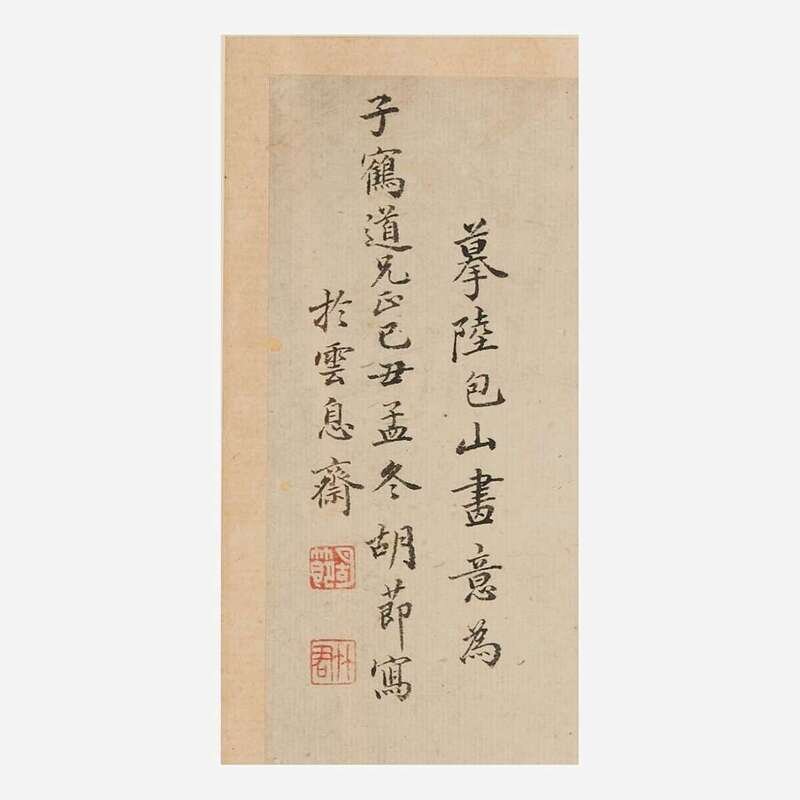 摹陸包山畫意為
子鶴道兄正己丑孟冬胡節寫
於雲息齋
胡節
竹君